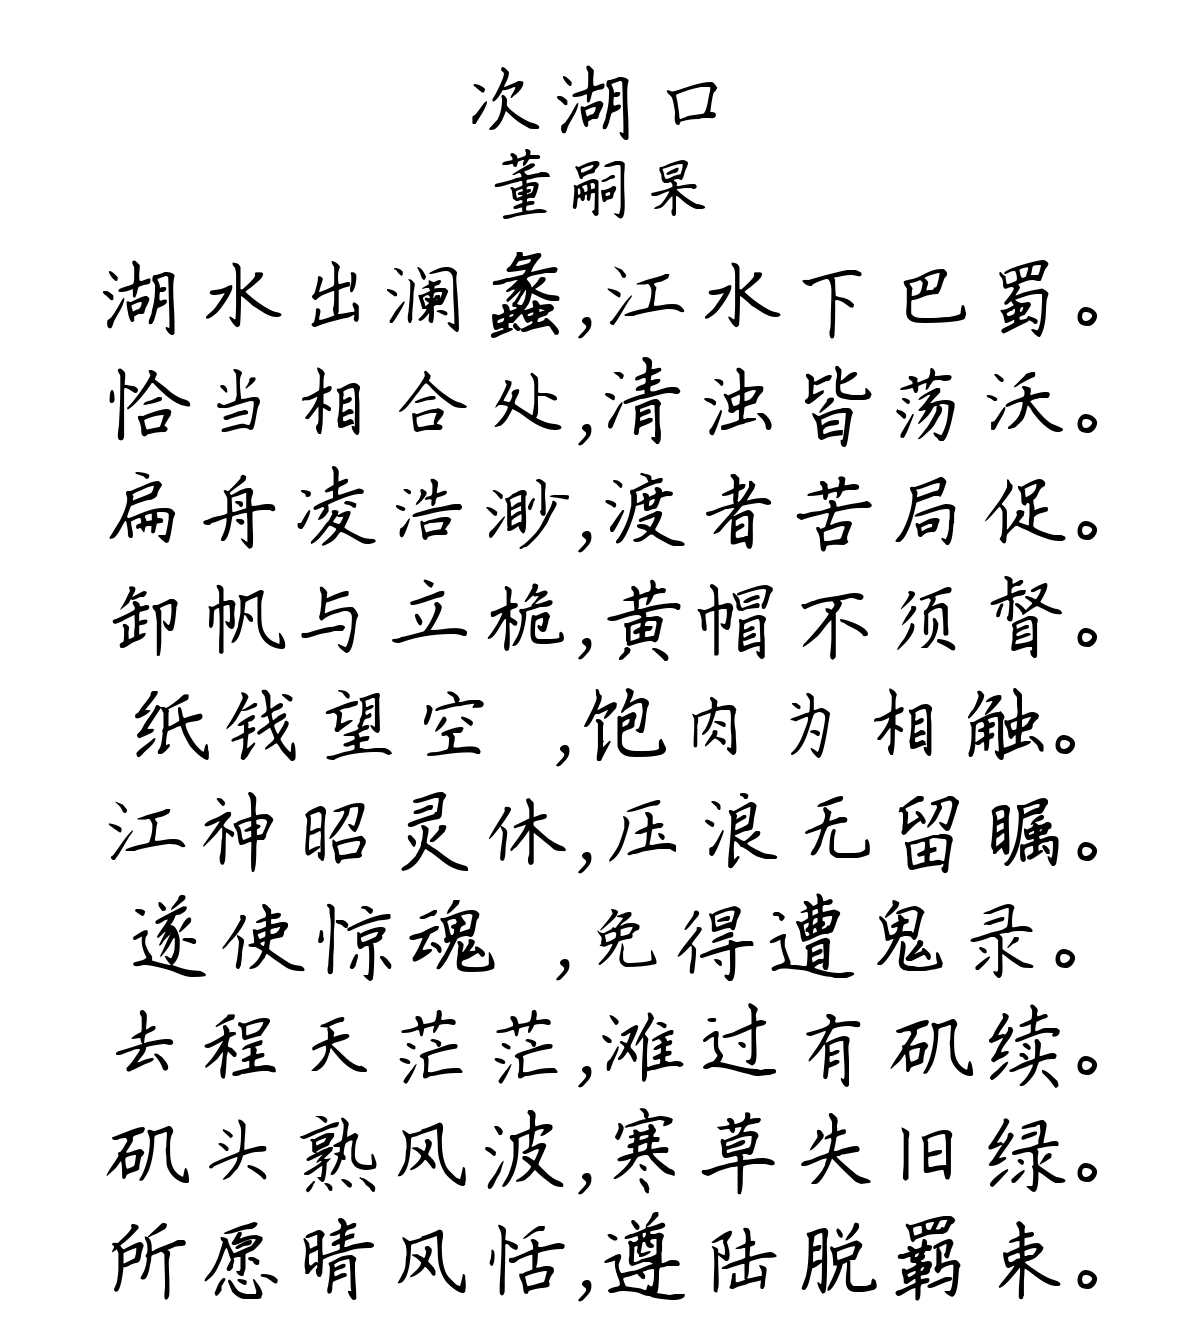 次湖口
董嗣杲
湖水出澜蠡,江水下巴蜀。
恰当相合处,清浊皆荡沃。
扁舟凌浩渺,渡者苦局促。
卸帆与立桅,黄帽不须督。
纸钱望空 ,饱肉为相触。
江神昭灵休,压浪无留瞩。
遂使惊魂 ,免得遭鬼录。
去程天茫茫,滩过有矶续。
矶头熟风波,寒草失旧绿。
所愿晴风恬,遵陆脱羁束。